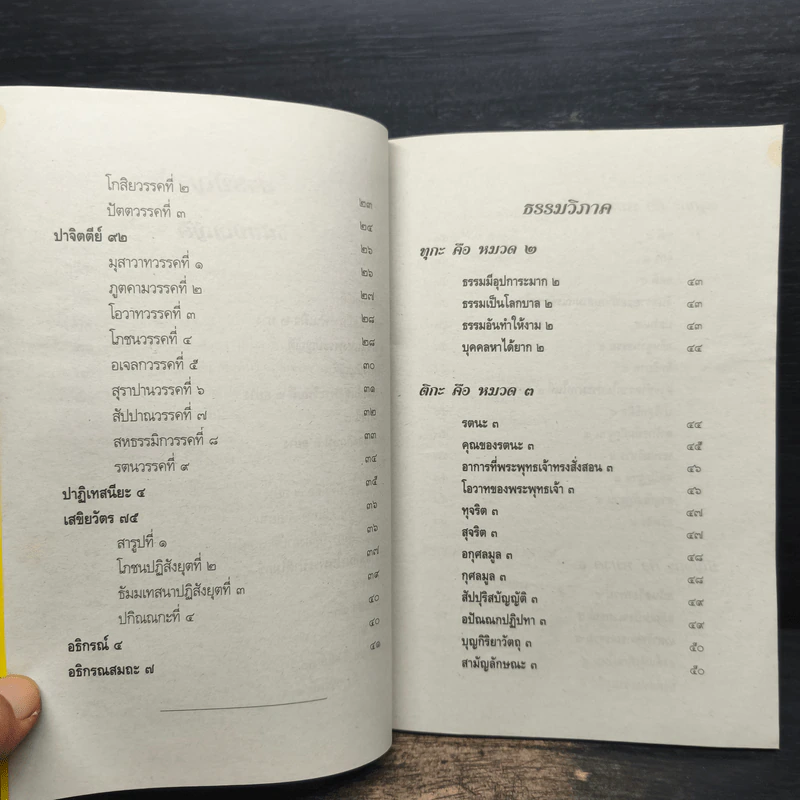 โกสิยวรรคที่ ๒ ๒๓
ปัตตวรรคที่ ๓ ๒๔
ปาจิตตีย์ ๙๒ ๒๖
มุสาวาทวรรคที่ ๑ ๒๖
ภูตคามวรรคที่ ๒ ๒๗
โอวาทวรรคที่ ๓ ๒๘
โภชนวรรคที่ ๔ ๒๘
อเจลกวรรคที่ ๕ ๓๐
สุราปานวรรคที่ ๖ ๓๑
สัปปาณวรรคที่ ๗ ๓๒
สหธรรมิกวรรคที่ ๘ ๓๓
รตนวรรคที่ ๙ ๓๔
ปาฏิเทสนียะ ๔ ๓๕
เสขิยวัตร ๗๕ ๓๖
สารูปที่ ๑ ๓๖
โภชนปฏิสังยุตที่ ๒ ๓๗
ธัมมเทสนาปฏิสังยุตที่ ๓ ๓๙
ปกิณณกะที่ ๔ ๔๐
อธิกรณ์ ๔ ๔๐
อธิกรณสมถะ ๗ ๔๑
ธรรมวิภาค
ทุกะ คือ หมวด ๒
ธรรมมีอุปการะมาก ๒ ๔๓
ธรรมเป็นโลกบาล ๒ ๔๓
ธรรมอันทำให้งาม ๒ ๔๓
บุคคลหาได้ยาก ๒ ๔๔
ติกะ คือ หมวด ๓
รตนะ ๓ ๔๔
คุณของรตนะ ๓ ๔๕
อาการที่พระพุทธเจ้าทรงสั่งสอน ๓ ๔๖
โอวาทของพระพุทธเจ้า ๓ ๔๖
ทุจริต ๓ ๔๗
สุจริต ๓ ๔๗
อกุศลมูล ๓ ๔๘
กุศลมูล ๓ ๔๘
สัปปุริสบัญญัติ ๓ ๔๙
อปัณณกปฏิปทา ๓ ๔๙
บุญกิริยาวัตถุ ๓ ๕๐
สามัญลักษณะ ๓ ๕๐